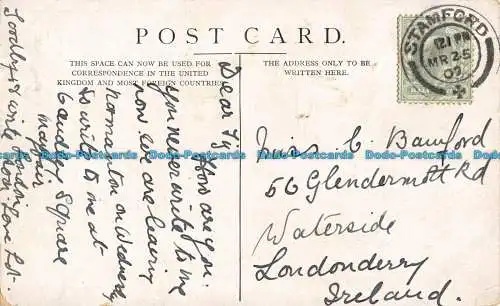 POST CARD.
THIS SPACE CAN NOW BE USED FOR
CORRESPONDENCE IN THE UNITED
KINGDOM AND MOST FOREIGN COUNTRIES
THE ADDRESS ONLY TO BE
WRITTEN HERE.
STAMFORD
12.1 PM
MR 25
07
Dear Ty. How are you.
you never write to me
now we are leaving
Normanton on Wednesday
So write to me at
Gandey Square
Mayfair
London
Goodbye & write soon Love
Miss C Bamford
56 Glendermott Rd
Waterside
Londonderry
Ireland.
Dodo-Postcards Dodo-Postcards Dodo-Postcards Dodo-Postcards